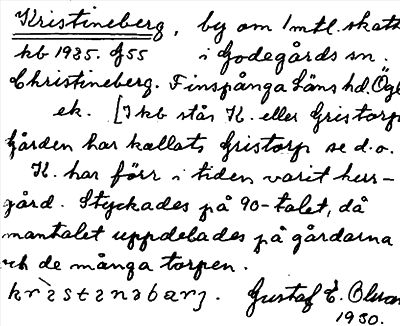 Kristineberg, by om 1 mtl. skatte
kb 1935. G55 i Godegårds sn.
Christineberg. Finspånga Läns hd. Ögl
ek. [I kb står K. eller Gristorp
Gården har kallats Gristorp se d.o.
K. har förr i tiden varit herr-
gård. Styckades på 90-talet, då
mantalet uppdelades på gårdarna
och de många torpen.
Gustaf E. Olsson
1930.